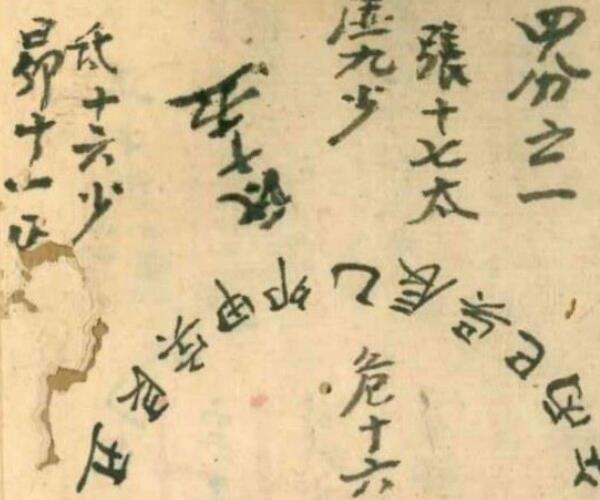 四分之一
張十七太
虛九少
氐十六少
昴十一正
丑艮寅甲卯乙辰巽巳丙
危十六